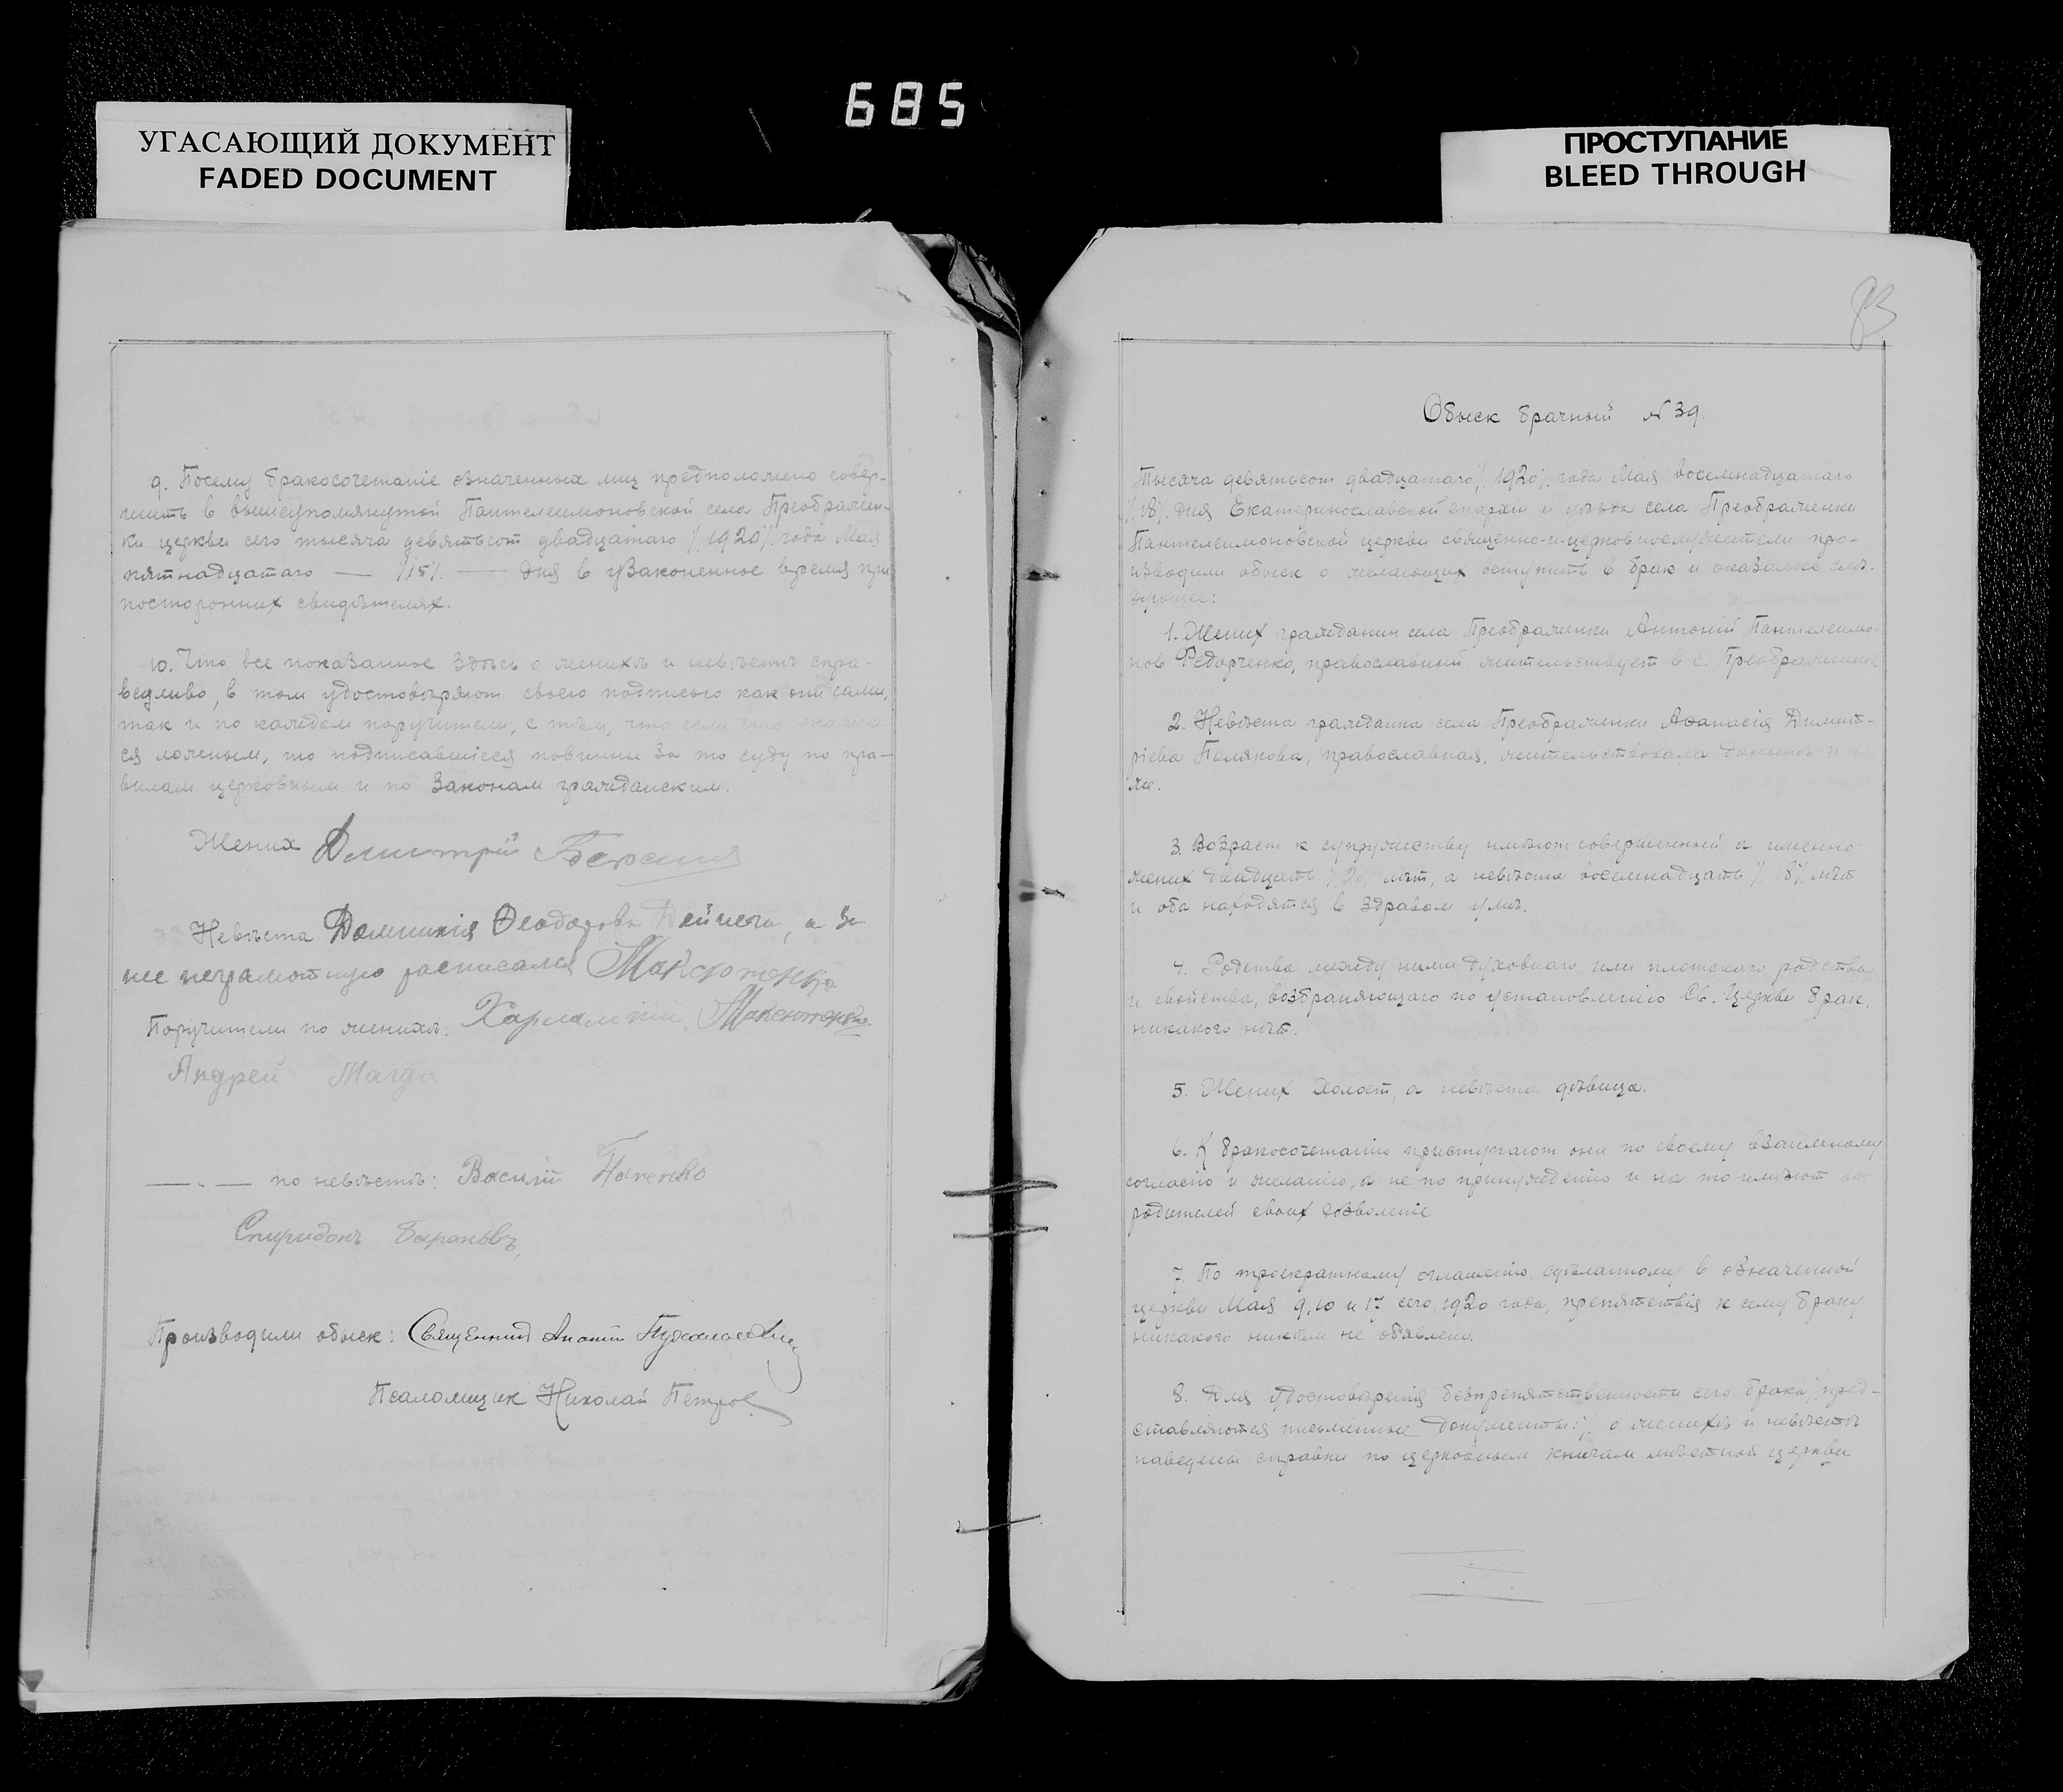 685
УГАСАЮЩИЙ ДОКУМЕНТ
FADED DOCUMENT
ПРОСТУПАНИЕ
BLEED THROUGH
9. Посему бракосочетаніе означенных лиц предположено совер-
шить в вышеупомянутой Пантелеимоновской села Преображен-
ки церкви сего тысяча девятьсот двадцатаго /.1920/. года Мая
пятнадцатаго — /.15/. — дня в узаконенное время при
посторонних свидѣтелях.
10. Что все показанное здѣсь о женихѣ и невѣстѣ спра-
ведливо, в том удостовѣряют своею подписью как они сами,
так и по каждом поручители, с тѣм, что если что окажет-
ся ложным, то подписавшіеся повинны за то суду по пра-
вилам церковным и по законам гражданским.
Жених Димитрій
Невѣста Домникія Ѳеодорова Дейнега, а за
нее неграмотную расписался Максютенко
Поручители по женихѣ: Харлампій Максютенко
Андрей Магда
—„— по невѣстѣ: Василій
Спиридонъ Барановъ
Производили обыск: Священник
Псаломщик Николай Петров
83
Обыск брачный № 39.
Тысяча девятьсот двадцатаго /.1920/. года Мая восемнадцатаго
/.18/. дня Екатеринославской епархіи и уѣзда села Преображенки
Пантелеимоновской церкви священно-и-церковнослужители про-
изводили обыск о желающих вступить в брак и оказалось слѣ-
дующее:
1. Жених гражданин села Преображенки Антоній Пантелеимо-
нов Федорченко, православный, жительствует в с. Преображенкѣ.
2. Невѣста гражданка села Преображенки Аѳанасія Димит-
ріева Полякова, православная, жительствовала донынѣ там
же.
3. Возраст к супружеству имѣют совершенный, а именно:
жених двадцать /.20/. лѣт, а невѣста восемнадцать /.18/. лѣт
и оба находятся в здравом умѣ.
4. Родства между ними духовнаго или плотскаго родства
и свойства, возбраняющаго по установленію Св. Церкви брак,
никакого нѣт.
5. Жених холост, а невѣста дѣвица.
6. К бракосочетанію приступают они по своему взаимному
согласію и желанію, а не по принужденію и на то имѣют от
родителей своих дозволеніе
7. По троекратному оглашенію, сдѣланному в означенной
церкви Мая 9, 10 и 17 сего, 1920 года, препятствія к сему браку
никакого никѣм не объявлено.
8. Для удостоверенія безпрепятственности сего брака /.пред-
ставляются письменные документы:/. о женихѣ и невѣстѣ
наведены справки по церковным книгам мѣстной церкви